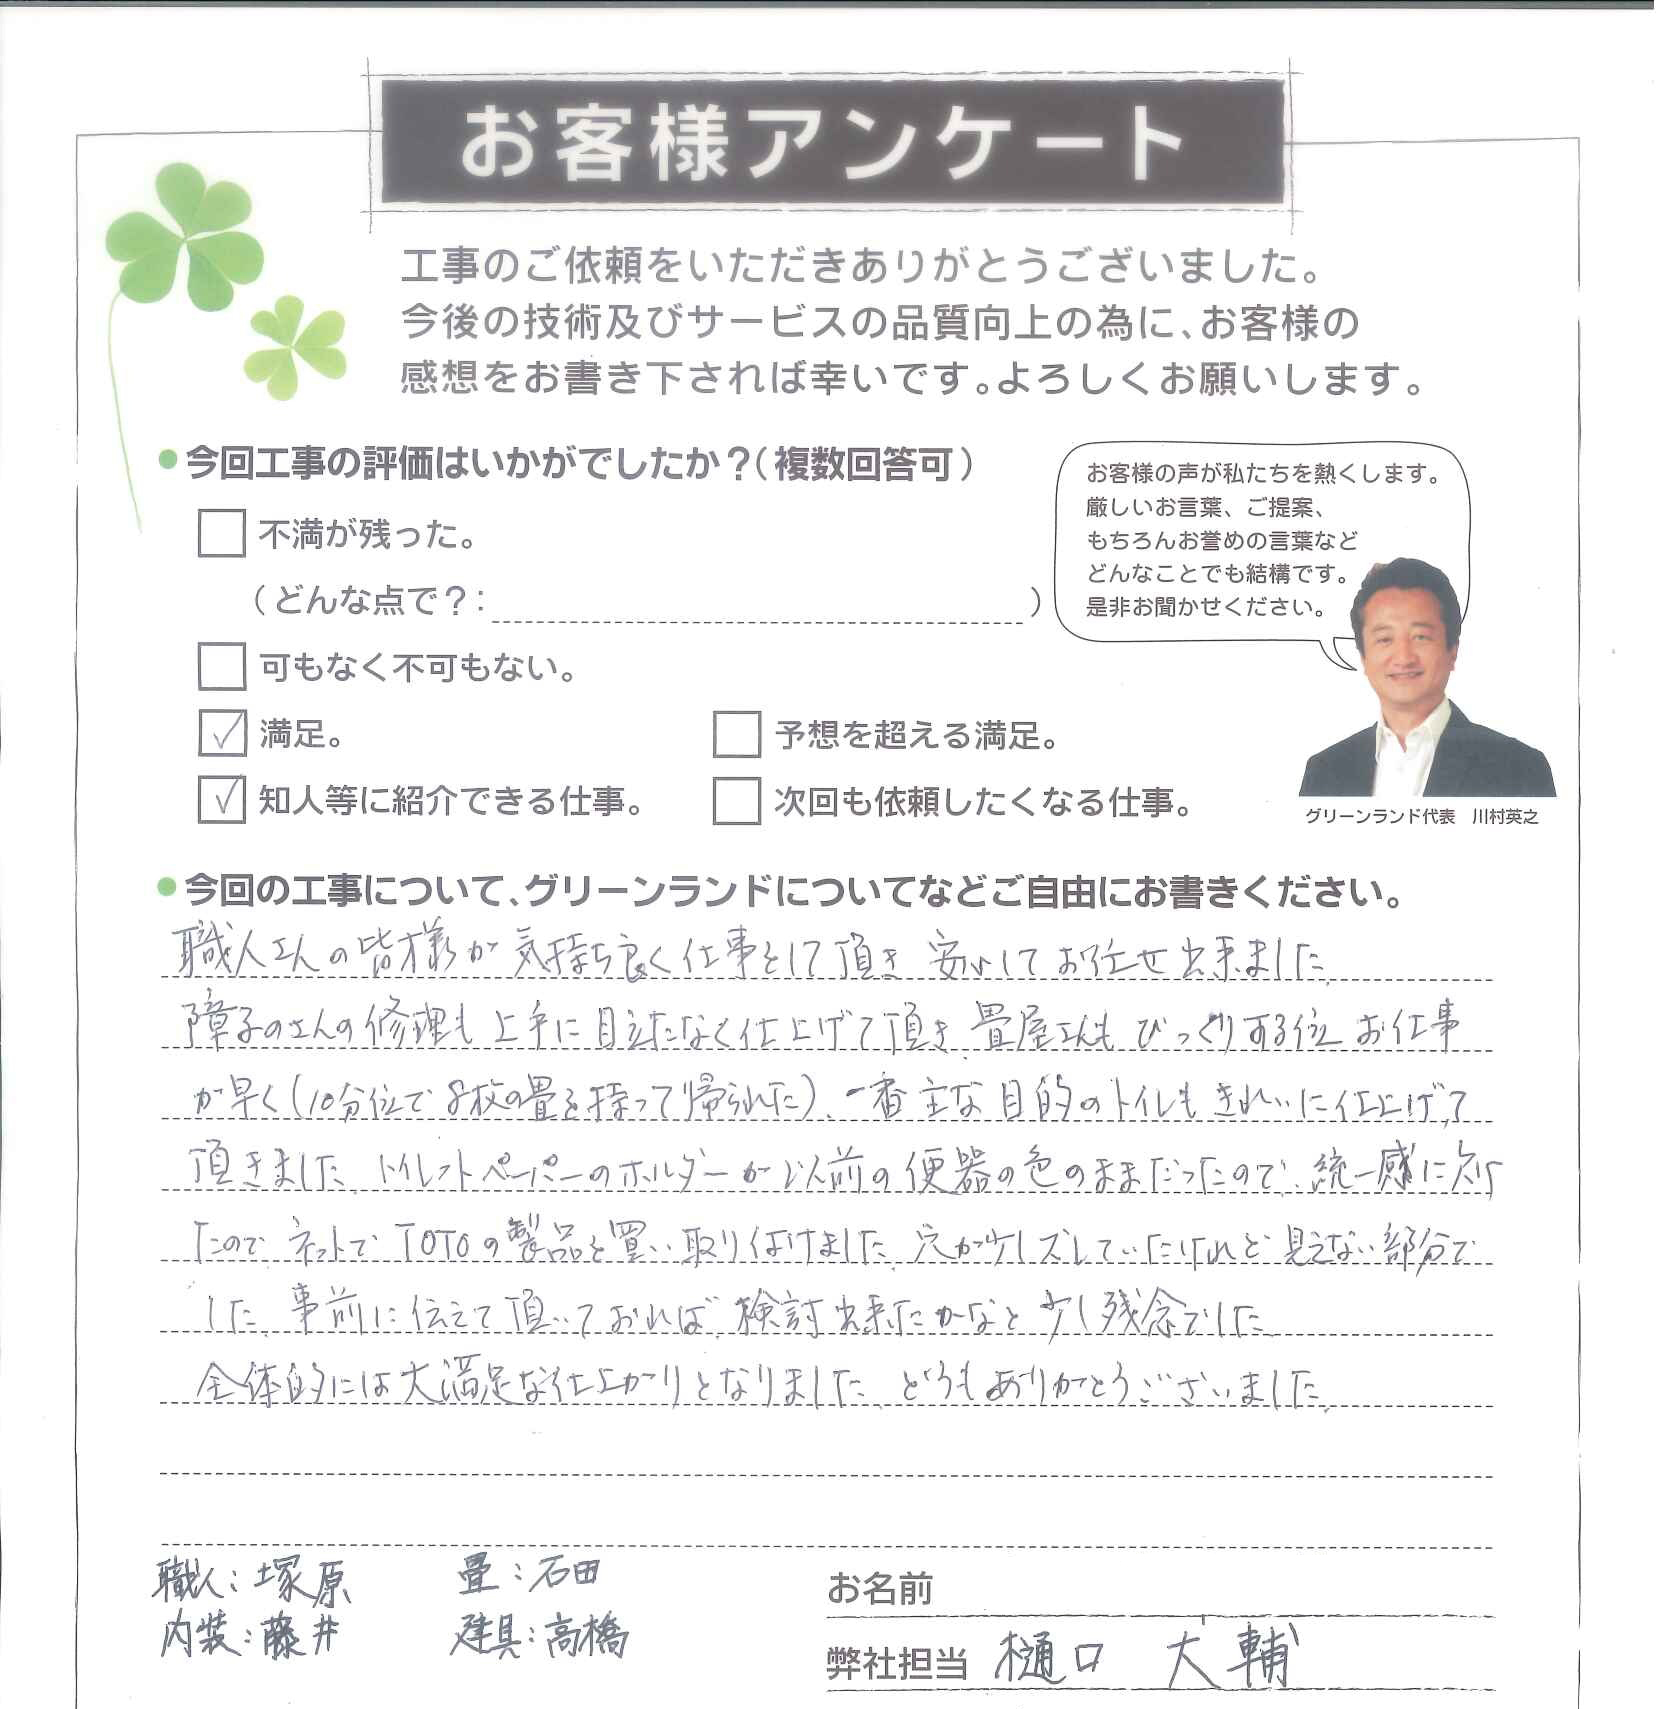 お客様アンケート
工事のご依頼をいただきありがとうございました。
今後の技術及びサービスの品質向上の為に、お客様の
感想をお書き下されば幸いです。よろしくお願いします。
今回工事の評価はいかがでしたか？（複数回答可）
不満が残った。
（どんな点で？： ）
可もなく不可もない。
満足。
予想を超える満足。
知人等に紹介できる仕事。
次回も依頼したくなる仕事。
お客様の声が私たちを熱くします。
厳しいお言葉、ご提案、
もちろんお誉めの言葉など
どんなことでも結構です。
是非お聞かせください。
グリーンランド代表 川村英之
今回の工事について、グリーンランドについてなどご自由にお書きください。
職人さんの皆様が気持ち良く仕事をして頂き 安心してお任せ出来ました
障子のさんの修理も上手に目立たなく仕上げて頂き、畳屋さんもびっくりする位お仕事
が早く(10分位で8枚の畳を持って帰られた)、一番主な目的のトイレもきれいに仕上げて
頂きました、トイレットペーパーのホルダーが以前の便器の色のままだったので、統一感に欠け
たのでネットでTOTOの製品を買い取り付けました、穴が少しズレていたけれど見えない部分で
した、事前に伝えて頂いておれば、検討出来たかなと少し残念でした
全体的には大満足な仕上がりとなりました、どうもありがとうございました、
職人：塚原 畳：石田
内装：藤井 建具：高橋
お名前
弊社担当 樋口 大輔